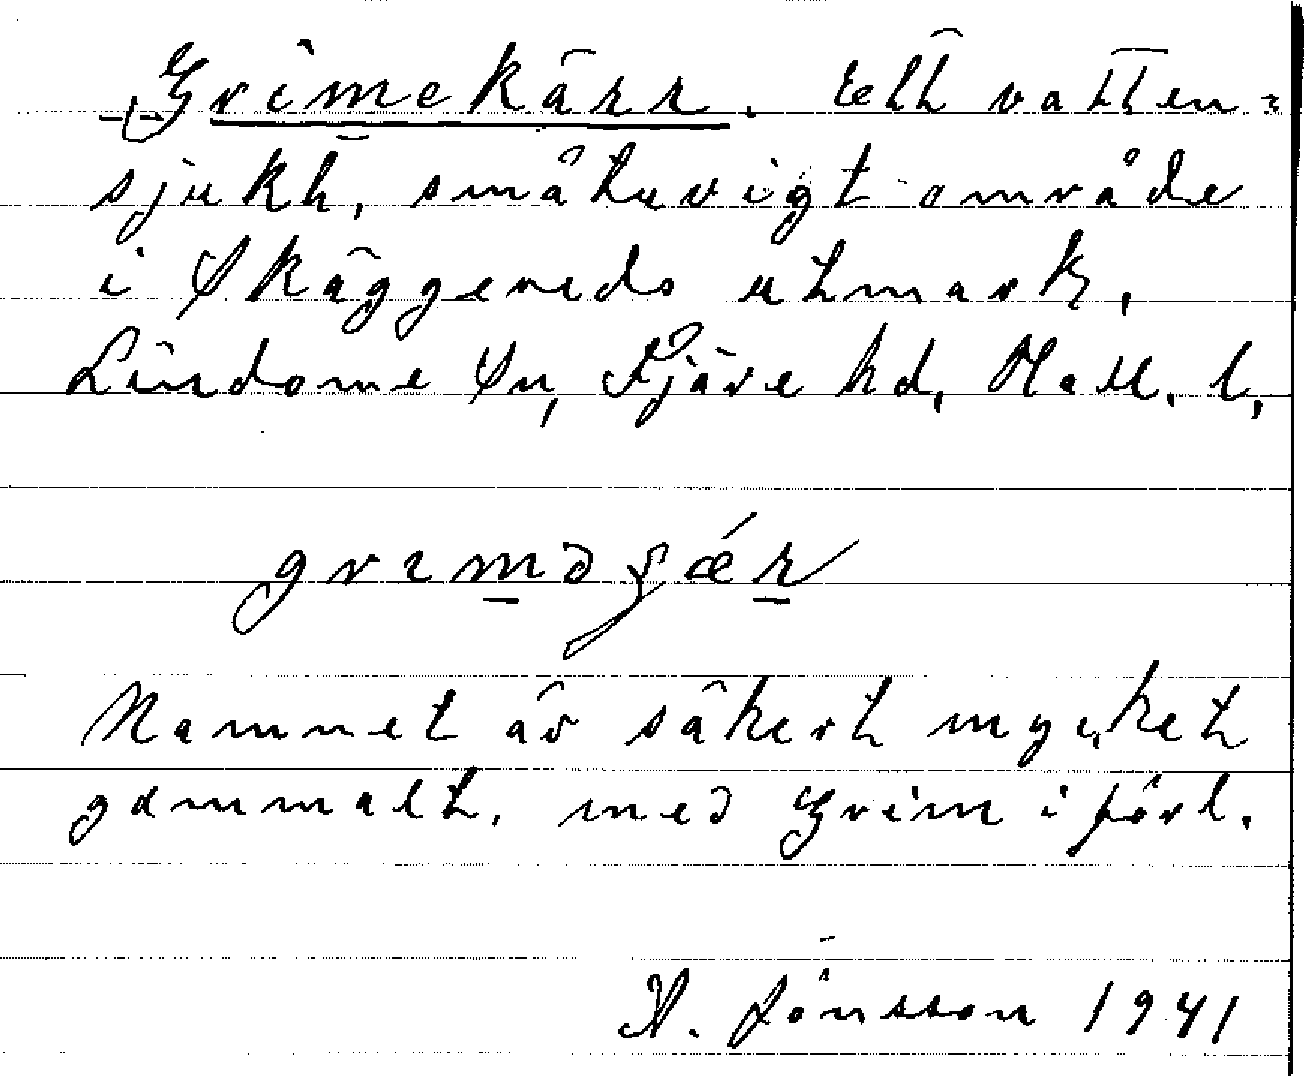 Grimekärr. Ett vatten-
sjukt, småtuvigt område
i Skäggereds utmark,
Lindome Sn, Fjäre hd, Hall. l,
grıməʃǽr
Namnet är säkert mycket
gammalt, med Grim i förl.
H. Jönsson 1941